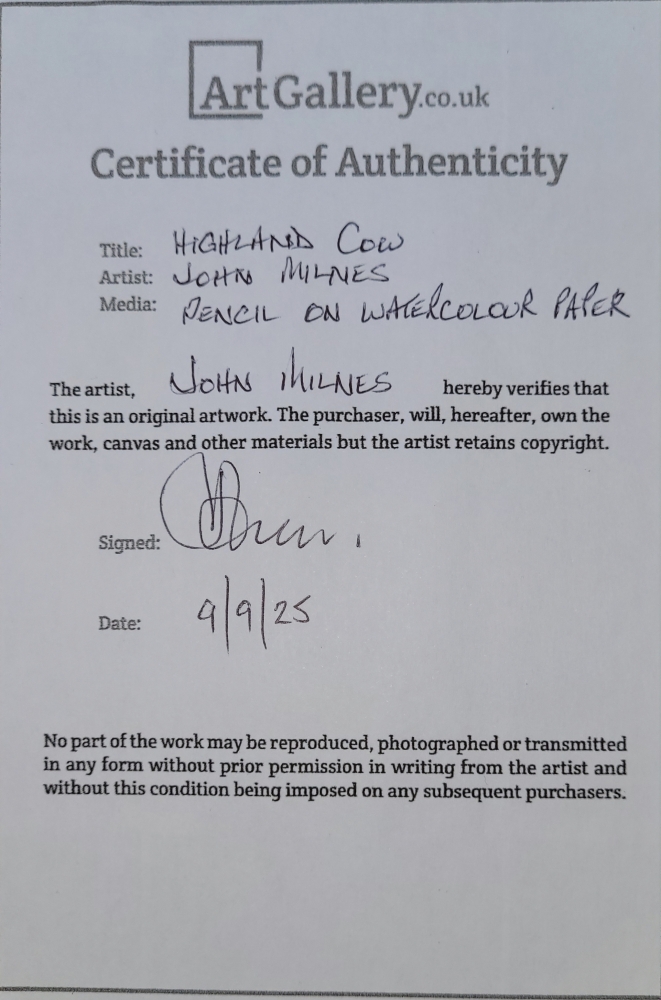 ArtGallery.co.uk
Certificate of Authenticity
Title: HIGHLAND COW
Artist: JOHN MILNES
Media: PENCIL ON WATERCOLOUR PAPER
The artist, JOHN MILNES hereby verifies that
this is an original artwork. The purchaser, will, hereafter, own the
work, canvas and other materials but the artist retains copyright.
Signed:
Date: 9/9/25
No part of the work may be reproduced, photographed or transmitted
in any form without prior permission in writing from the artist and
without this condition being imposed on any subsequent purchasers.